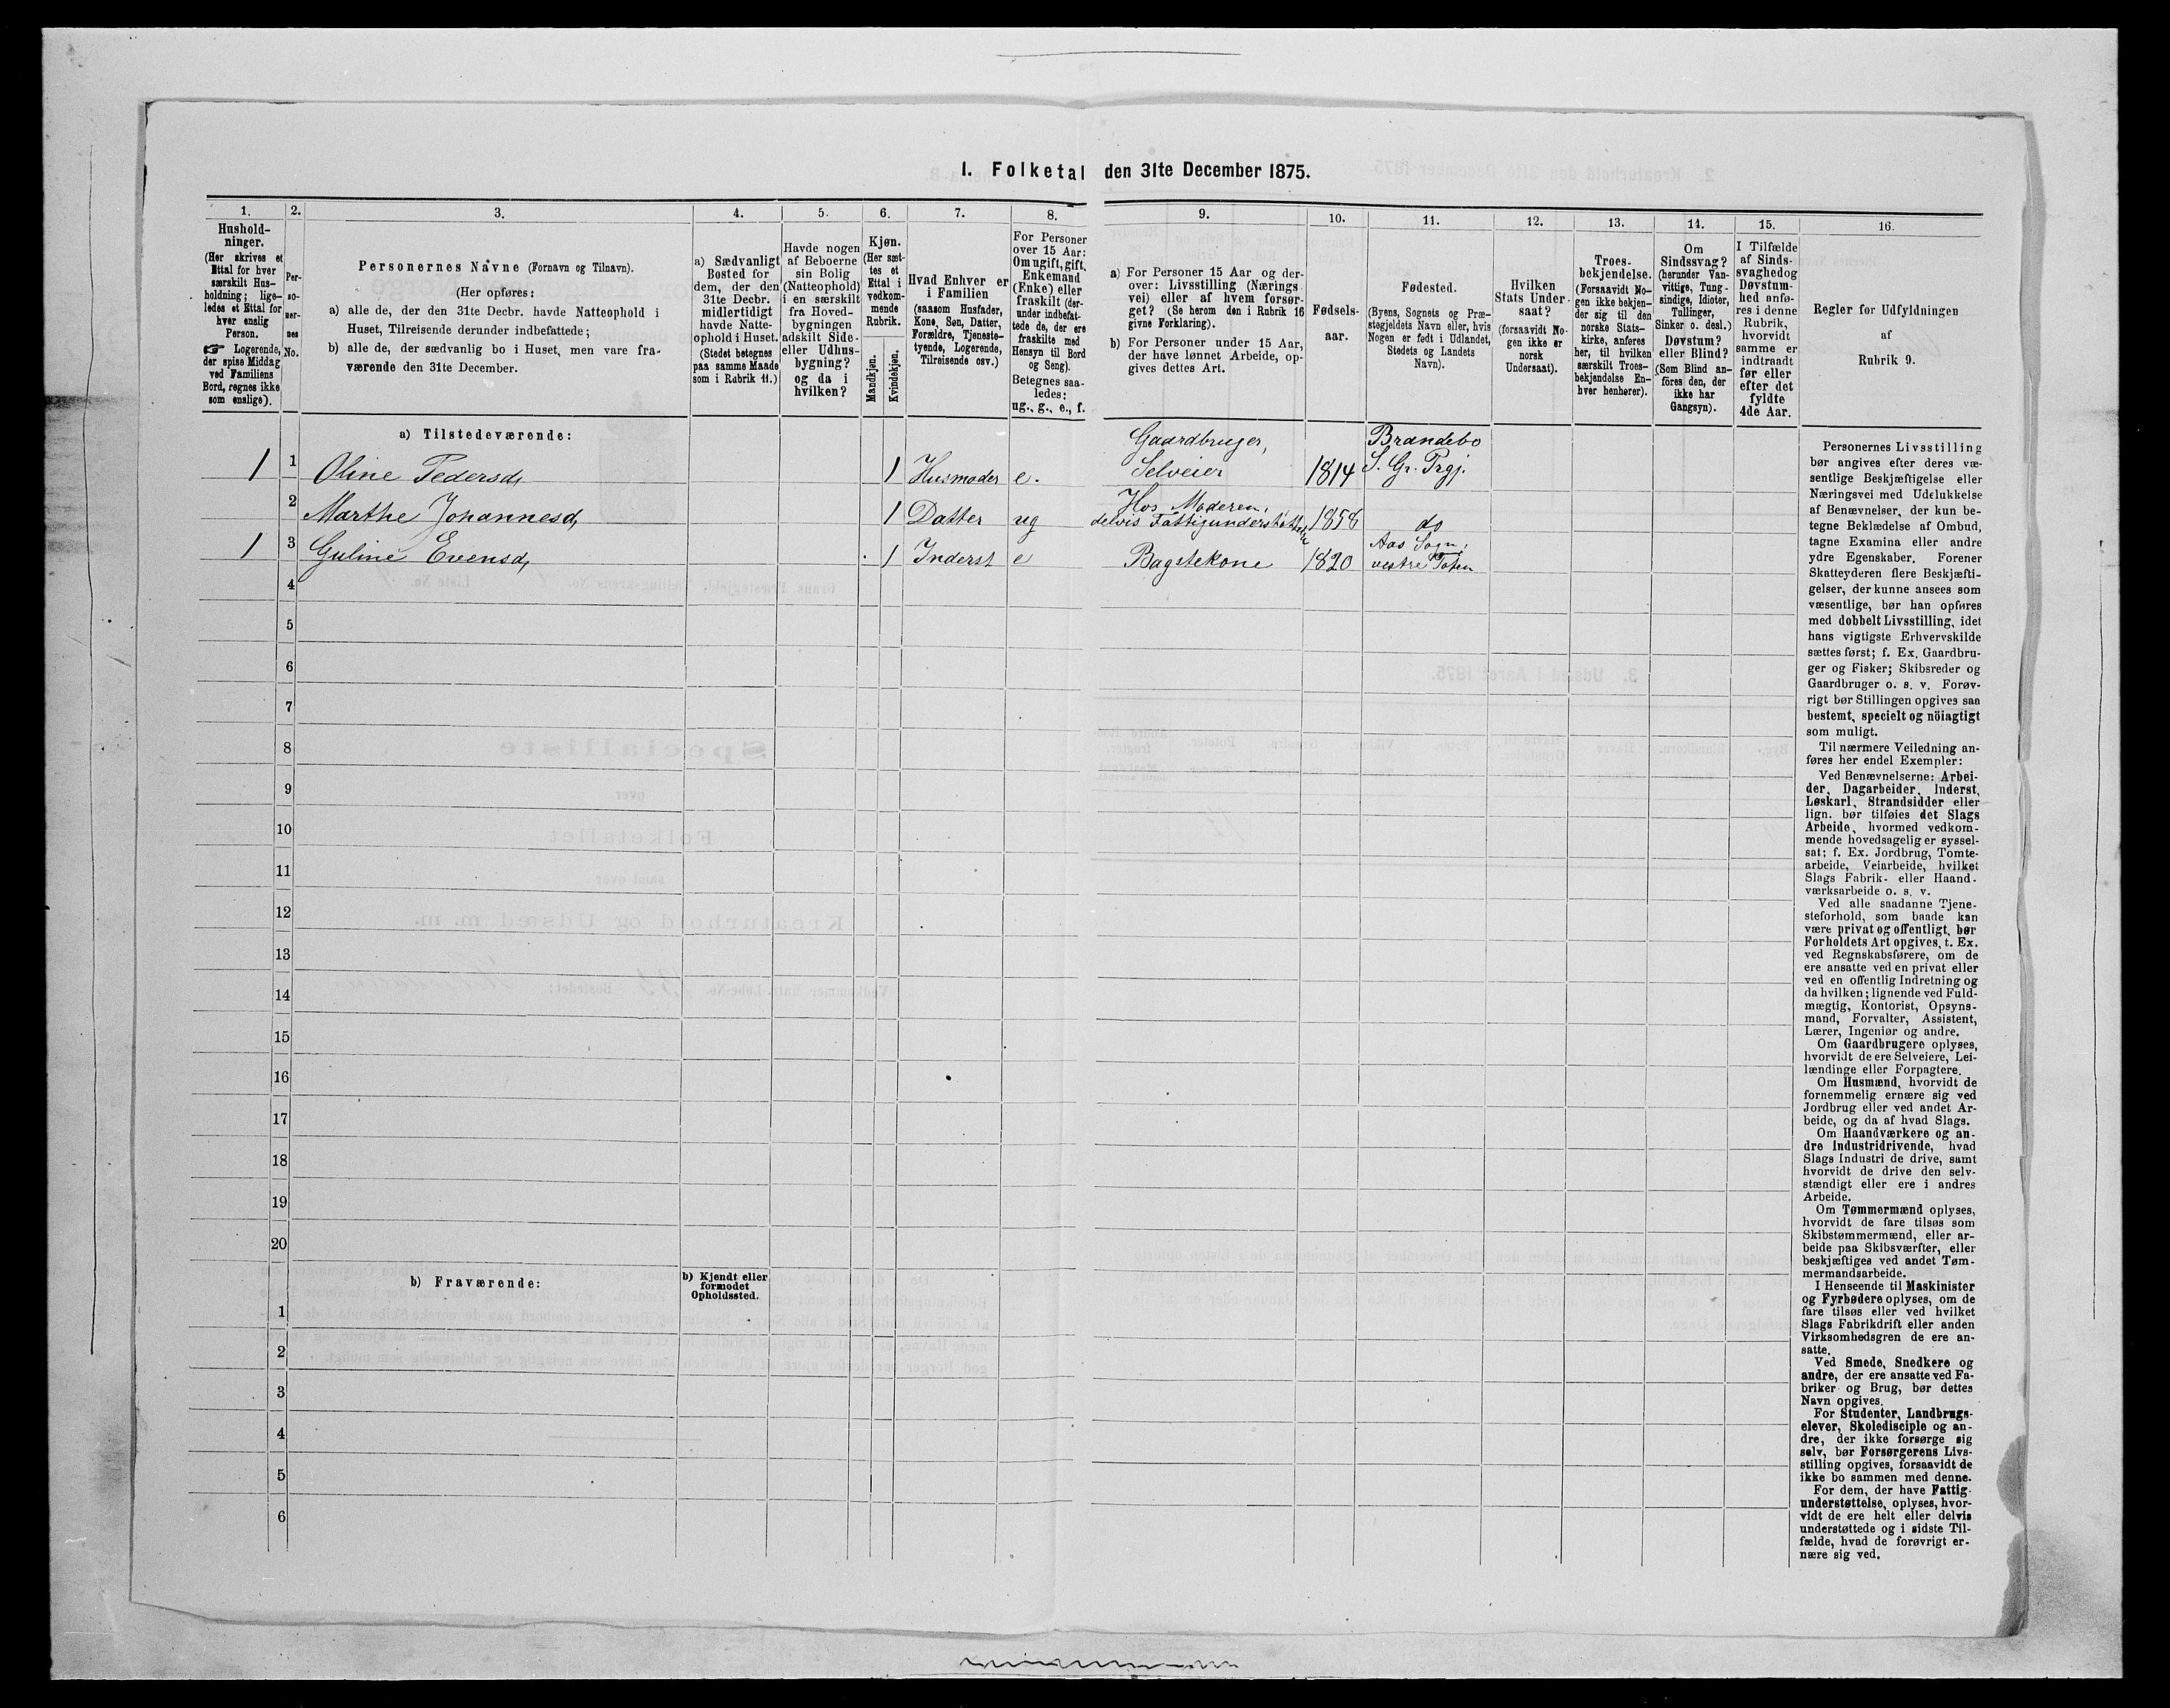 I. Folketal den 31te December 1875.
1.
2.
3.
4.
5.
6.
7.
8.
9.
10.
11.
12.
13.
14.
15.
16.
Hushold-
ninger.
(Her skrives et
Ettal for hver
særskilt Hus-
holdning; lige-
ledes et Ettal for
hver enslig
Person.
☞ Logerende,
der spise Middag
ved Familiens
Bord, regnes ikke
som enslige).
Per-
so-
ner-
nes
No.
Personernes Navne (Fornavn og Tilnavn).
(Her opføres:
a) alle de, der den 31te Decbr. havde Natteophold i
Huset, Tilreisende derunder indbefattede;
b) alle de, der sædvanlig bo i Huset, men vare fra-
værende den 31te December.
a) Sædvanligt
Bosted for
dem, der den
31te Decbr.
midlertidigt
havde Natte-
ophold i Huset.
(Stedet betegnes
paa samme Maade
som i Rubrik 11.)
Havde nogen
af Beboerne
sin Bolig
(Natteophold)
i en særskilt
fra Hoved-
bygningen
adskilt Side-
eller Udhus-
bygning?
og da i
hvilken?
Kjøn.
(Her sæt-
tes et
Ettal i
vedkom-
mende
Rubrik.
Mandkjøn.
Kvindekjøn.
Hvad Enhver er
i Familien
(saasom Husfader,
Kone, Søn, Datter,
Forældre, Tjeneste-
tyende, Logerende,
Tilreisende osv.)
For Personer
over 15 Aar:
Om ugift, gift,
Enkemand
(Enke) eller
fraskilt (der-
under indbefat-
tede de, der ere
fraskilte med
Hensyn til Bord
og Seng).
Betegnes saa-
ledes:
ug., g., e., f.
a) For Personer 15 Aar og der-
over: Livsstilling (Nærings-
vei) eller af hvem forsør-
get? (Se herom den i Rubrik 16
givne Forklaring).
b) For Personer under 15 Aar,
der have lønnet Arbeide, op-
gives dettes Art.
Fødsels-
aar.
Fødested.
(Byens, Sognets og Præ-
stegjeldets Navn eller, hvis
Nogen er født i Udlandet,
Stedets og Landets
Navn).
Hvilken
Stats Under-
saat?
(forsaavidt No-
gen ikke er
norsk
Undersaat).
Troes-
bekjendelse.
(Forsaavidt No-
gen ikke bekjen-
der sig til den
norske Stats-
kirke, anføres
her, til hvilken
særskilt Troes-
bekjendelse En-
hver henhører).
Om
Sindssvag?
(herunder Van-
vittige, Tung-
sindige, Idioter,
Tullinger,
Sinker o. desl.)
Døvstum?
eller Blind?
(Som Blind an-
føres den, der
ikke har
Gangsyn).
I Tilfælde
af Sinds-
svaghed og
Døvstum-
hed anfø-
res i denne
Rubrik,
hvorvidt
samme er
indtraadt
før eller
efter det
fyldte
4de Aar.
Regler for Udfyldningen
af
Rubrik 9.
a) Tilstedeværende:
1 1 Oline Pedersd, 1 Husmoder e. Gaardbruger, Selveier 1814 Brandebo S. Gr. Prgj.
2 Marthe Johannesd, 1 Datter ug Hos Moderen, delvis Fattigunderstøttelse 1858 do
1 3 Guline Evensd, 1 Inderst e Bagstekone 1820 Aas Sogn, vestre Toten
4
5
6
7
8
9
10
11
12
13
14
15
16
17
18
19
20
b) Fraværende:
b) Kjendt eller
formodet
Opholdssted.
1
2
3
4
5
6
Personernes Livsstilling
bør angives efter deres væ-
sentlige Beskjæftigelse eller
Næringsvei med Udelukkelse
af Benævnelser, der kun be-
tegne Beklædelse af Ombud,
tagne Examina eller andre
ydre Egenskaber. Forener
Skatteyderen flere Beskjæfti-
gelser, der kunne ansees som
væsentlige, bør han opføres
med dobbelt Livsstilling, idet
hans vigtigste Erhvervskilde
sættes først; f. Ex. Gaardbru-
ger og Fisker; Skibsreder og
Gaardbruger o. s. v. Forøv-
rigt bør Stillingen opgives saa
bestemt, specielt og nöiagtigt
som muligt.
Til nærmere Veiledning an-
føres her endel Exempler:
Ved Benævnelserne: Arbei-
der, Dagarbeider, Inderst,
Løskarl, Strandsidder eller
lign. bør tilføies det Slags
Arbeide, hvormed vedkom-
mende hovedsagelig er syssel-
sat; f. Ex. Jordbrug, Tomte-
arbeide, Veiarbeide, hvilket
Slags Fabrik- eller Haand-
værksarbeide o. s. v.
Ved alle saadanne Tjene-
steforhold, som baade kan
være privat og offentligt, bør
Forholdets Art opgives, t. Ex.
ved Regnskabsførere, om de
ere ansatte ved en privat eller
ved en offentlig Indretning og
da hvilken; lignende ved Fuld-
mægtig, Kontorist, Opsyns-
mand, Forvalter, Assistent,
Lærer, Ingeniør og andre.
Om Gaardbrugere oplyses,
hvorvidt de ere Selveiere, Lei-
lændinge eller Forpagtere.
Om Husmænd, hvorvidt de
fornemmelig ernære sig ved
Jordbrug eller ved andet Ar-
beide, og da af hvad Slags.
Om Haandværkere og an-
dre Industridrivende, hvad
Slags Industri de drive, samt
hvorvidt de drive den selv-
stændigt eller ere i andres
Arbeide.
Om Tømmermænd oplyses,
hvorvidt de fare tilsøs som
Skibstømmermænd, eller ar-
beide paa Skibsværfter, eller
beskjæftiges ved andet Tøm-
mermandsarbeide.
I Henseende til Maskinister
og Fyrbødere oplyses, om de
fare tilsøs eller ved hvilket
Slags Fabrikdrift eller anden
Virksomhedsgren de ere an-
satte.
Ved Smede, Snedkere og
andre, der ere ansatte ved Fa-
briker og Brug, bør dettes
Navn opgives.
For Studenter, Landbrugs-
elever, Skoledisciple og an-
dre, der ikke forsørge sig
selv, bør Forsørgerens Livs-
stilling opgives, forsaavidt de
ikke bo sammen med denne.
For dem, der have Fattig-
understøttelse, oplyses, hvor-
vidt de ere helt eller delvis
understøttede og i sidste Til-
fælde, hvad de forøvrigt er-
nære sig ved.